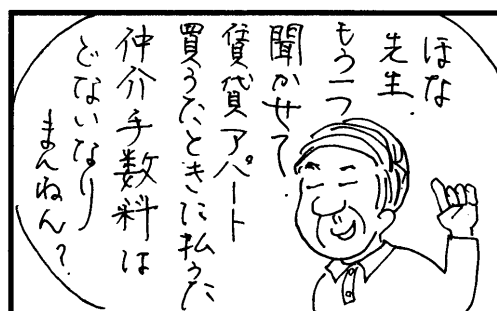 ほな
先生.
もう一つ
聞かせて.
賃貸アパート
買うたときに払うた
仲介手数料は
どないなり
まんねん?